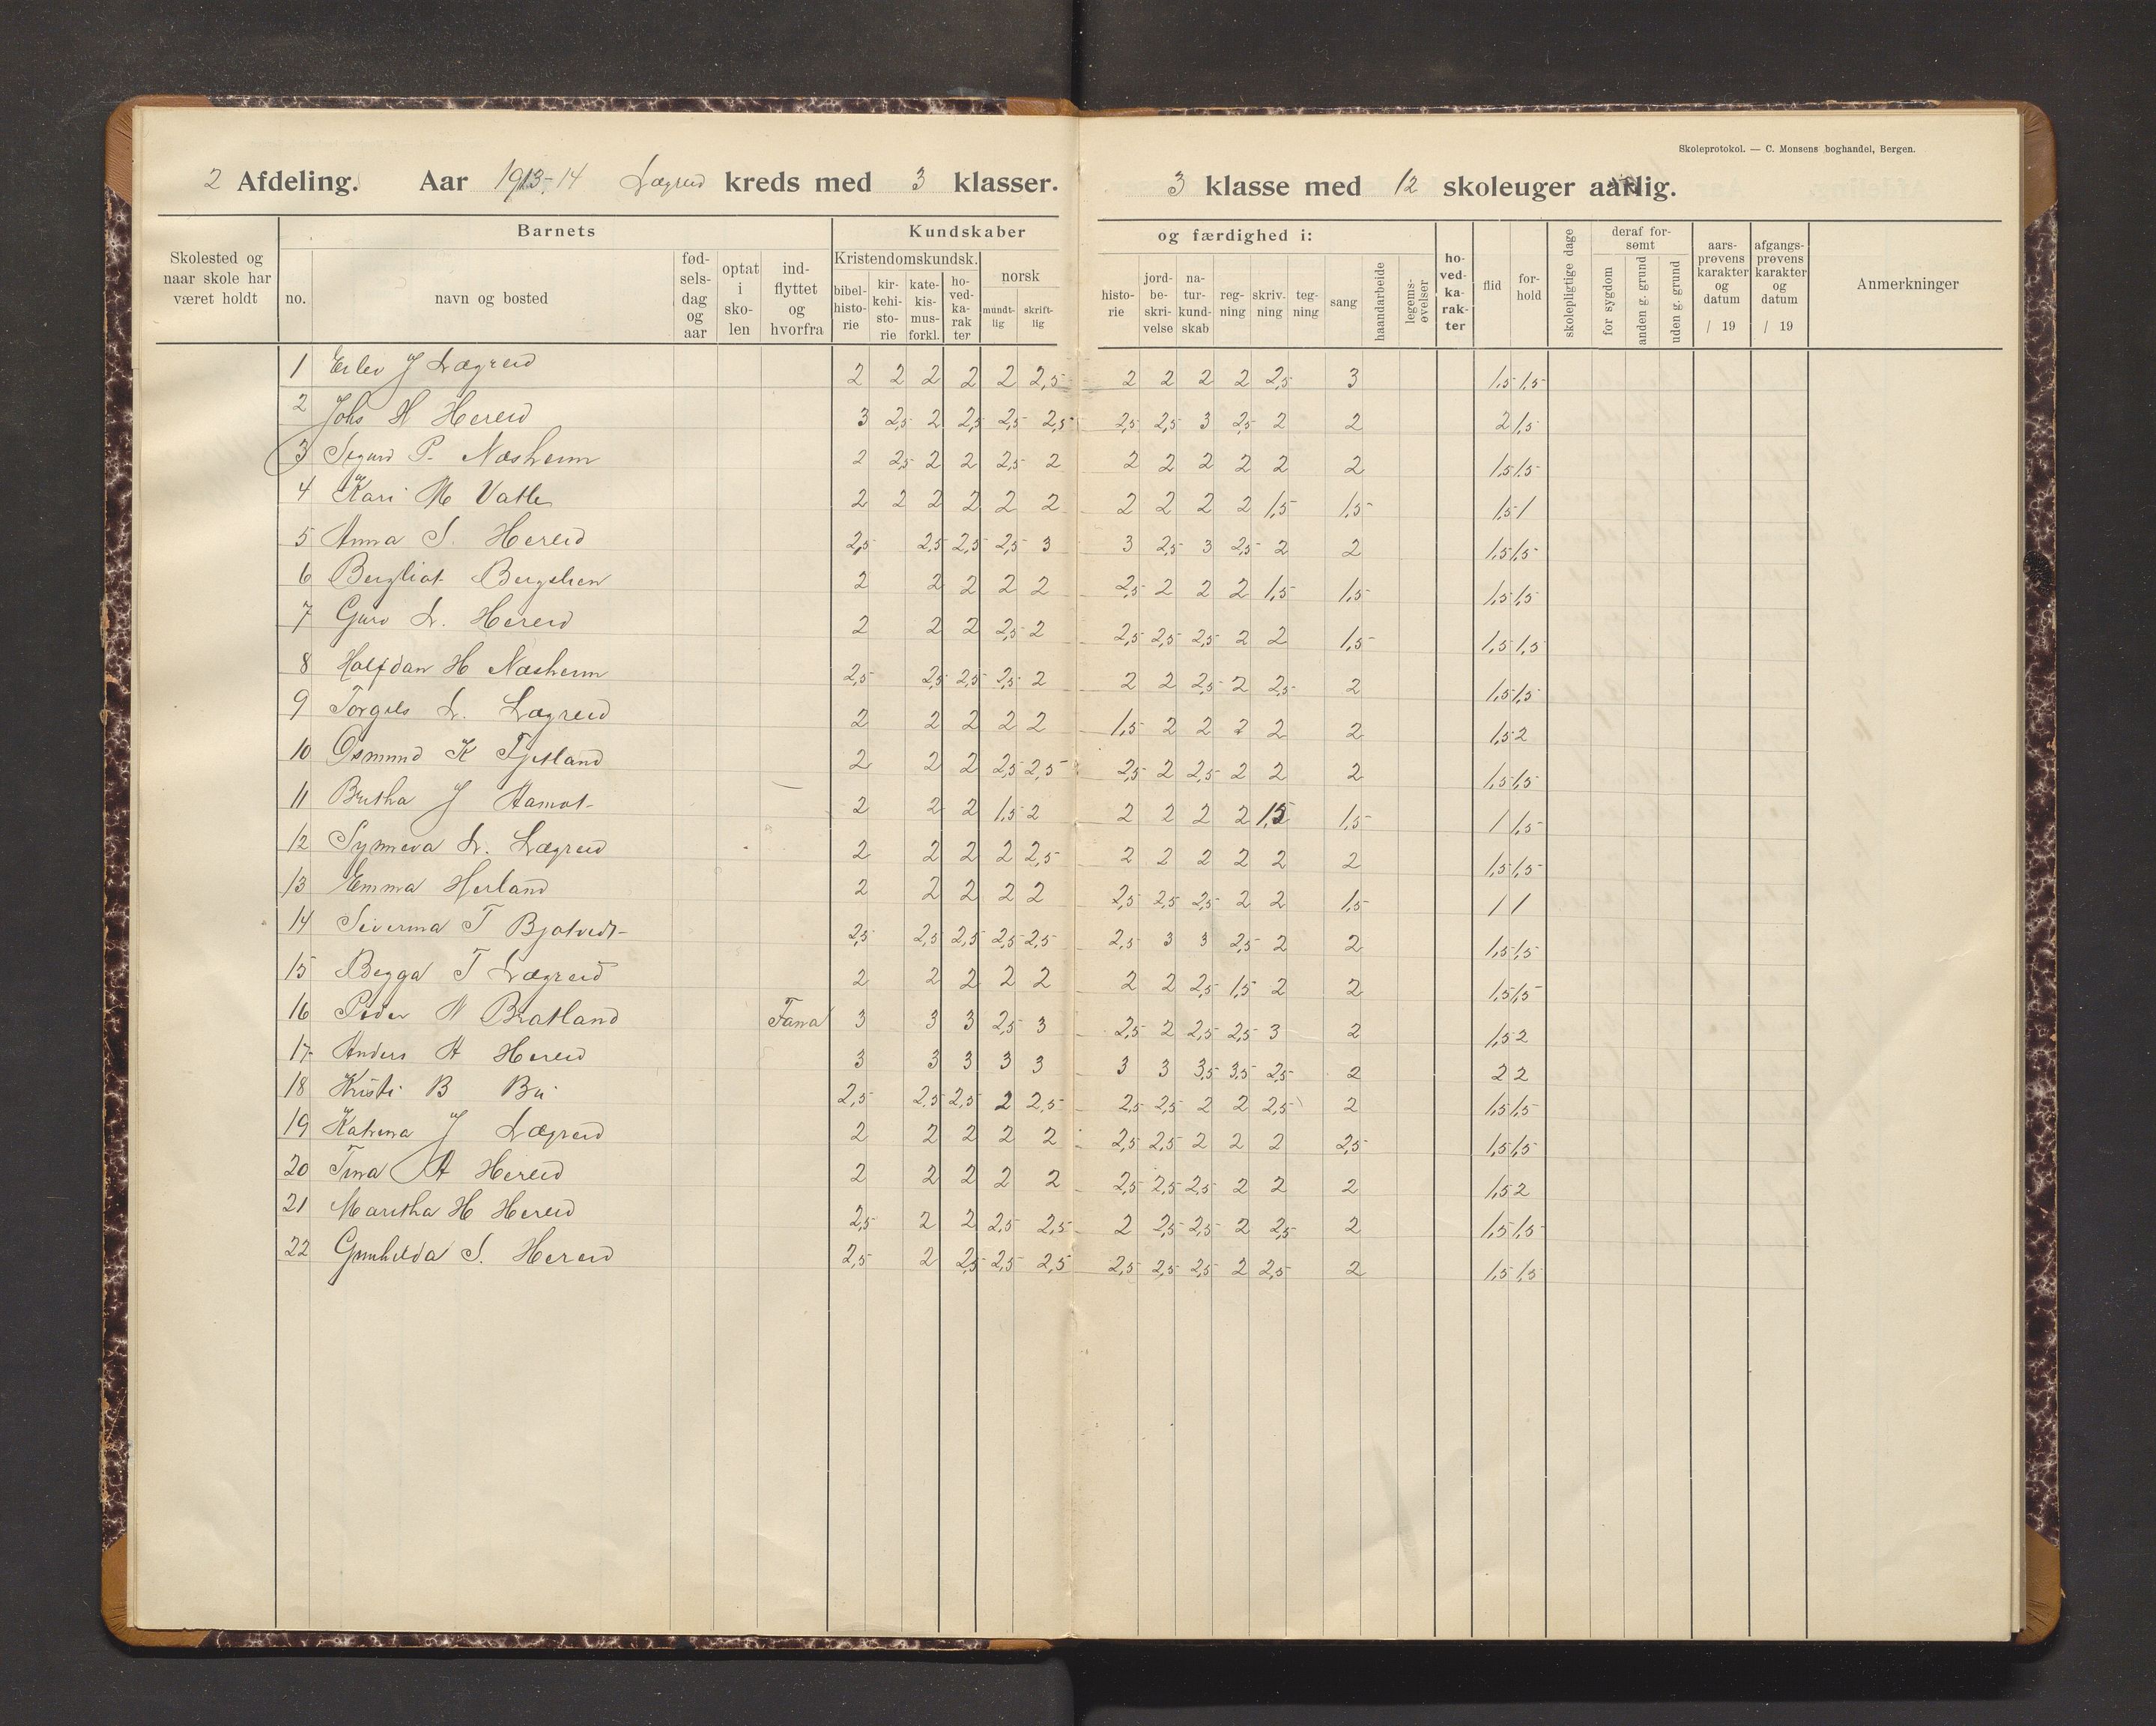 Skoleprotokol. — C. Monsens boghandel, Bergen.
2 Afdeling. Aar 1913-14 Lægreid kreds med 3 klasser. 3 klasse med 12 skoleuger aarlig.
Skolested og naar skole har været holdt
Barnets
no. navn og bosted fødselsdag og aar optat i skolen indflyttet og hvorfra
Kundskaber og færdighed i:
Kristendomskundsk. norsk
bibelhistorie kirkehistorie katekismusforkl. hovedkarakter mundtlig skriftlig
historie jordbeskrivelse naturkundskab regning skrivning tegning sang haandarbeide legemsøvelser
hovedkarakter flid forhold skolepligtige dage
deraf forsømt
for sygdom anden g. grund uden g. grund
aarsprøvens karakter og datum / 19
afgangsprøvens karakter og datum / 19
Anmerkninger
1 Erlev J Lægreid 2 2 2 2 2 2,5 2 2 2 2 2,5 3 1,5 1,5
2 Johs H Hereid 3 2,5 2 2,5 2,5 2,5 2,5 2,5 3 2,5 2 2 2 1,5
3 Sigurd P. Næsheim 2 2,5 2 2 2,5 2 2 2 2 2 2 2 1,5 1,5
4 Kari M Vatle 2 2 2 2 2 2 2 2 2 2 1,5 1,5 1,5 1
5 Anna S. Hereid 2,5 2,5 2,5 2,5 3 3 2,5 3 2,5 2 2 1,5 1,5
6 Bergliot Bergelien 2 2 2 2 2 2,5 2 2 2 1,5 1,5 1,5 1,5
7 Guro L. Hereid 2 2 2 2,5 2 2,5 2,5 2,5 2 2 1,5 1,5 1,5
8 Halfdan H Næsheim 2,5 2,5 2,5 2,5 2 2 2 2,5 2 2,5 2 1,5 1,5
9 Torgils L. Lægreid 2 2 2 2 2 1,5 2 2 2 2 2 1,5 2
10 Osmund K Tjetland 2 2 2 2,5 2,5 2,5 2 2,5 2 2 2 1,5 1,5
11 Britha J Aamot 2 2 2 1,5 2 2 2 2 2 1,5 1,5 1 1,5
12 Synneva L. Lægreid 2 2 2 2 2,5 2 2 2 2 2 2 1,5 1,5
13 Emma Herland 2 2 2 2 2 2,5 2,5 2,5 2 2 1,5 1 1
14 Siverina T Bjotvedt 2,5 2,5 2,5 2,5 2,5 2,5 3 3 2,5 2 2 1,5 1,5
15 Begga T Lægreid 2 2 2 2 2 2 2 2,5 1,5 2 2 1,5 1,5
16 Peder N Bratland Fana 3 3 3 2,5 3 2,5 2 2,5 2,5 3 2 1,5 2
17 Anders A Hereid 3 3 3 3 3 3 3 3,5 3,5 2,5 2 2 2
18 Kristi B Bu 2,5 2,5 2,5 2 2,5 2,5 2,5 2 2 2,5 2 1,5 1,5
19 Katrina J Lægreid 2 2 2 2 2 2,5 2,5 2 2 2 2,5 1,5 1,5
20 Tina A Hereid 2 2 2 2 2 2,5 2,5 2,5 2 2 2 1,5 2
21 Maritha H Hereid 2,5 2 2 2,5 2,5 2 2,5 2,5 2 2,5 2 1,5 1,5
22 Gunhilda S. Hereid 2,5 2 2,5 2,5 2,5 2,5 2,5 2,5 2 2,5 2 1,5 1,5